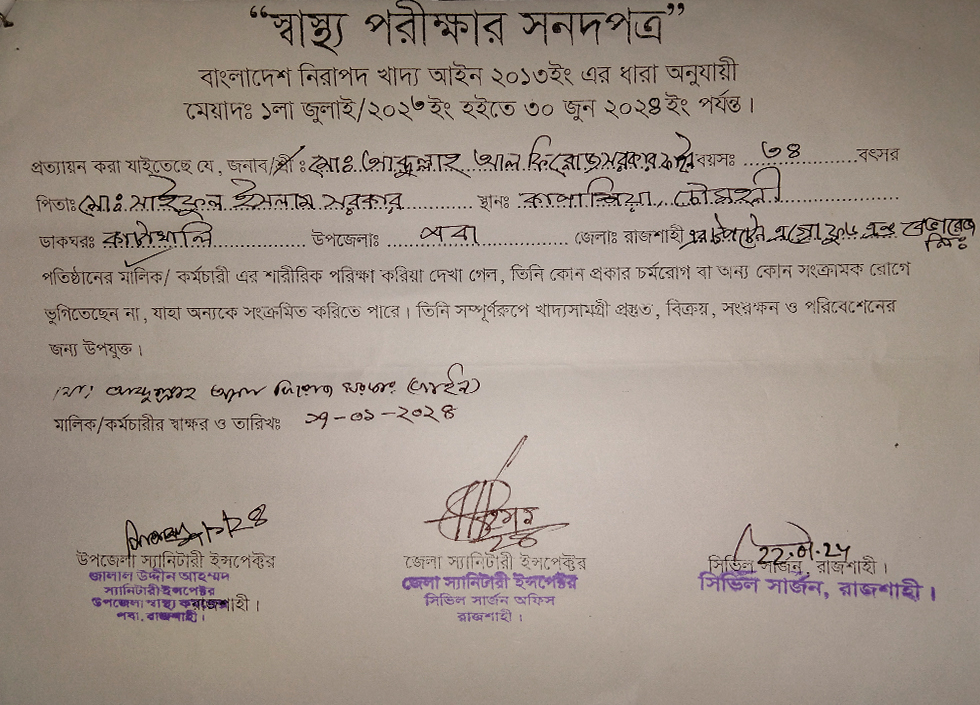 “স্বাস্থ্য পরীক্ষার সনদপত্র”
বাংলাদেশ নিরাপদ খাদ্য আইন ২০১৩ইং এর ধারা অনুযায়ী
মেয়াদঃ ১লা জুলাই/২০২৩ইং হইতে ৩০ জুন ২০২৪ইং পর্যন্ত।
প্রত্যায়ন করা যাইতেছে যে, জনাব/শ্রী : মোঃ আব্দুল্লাহ আল ফিরোজ সরকার বয়সঃ ৩৪ বৎসর
পিতাঃ মোঃ সাইফুল ইসলাম সরকার স্থানঃ কাপাশিয়া,
ডাকঘরঃ কাটাখালি উপজেলাঃ পবা জেলাঃ রাজশাহী এগ্রো ফুড এন্ড বেভারেজ লিঃ
পতিষ্ঠানের মালিক/ কর্মচারী এর শারীরিক পরিক্ষা করিয়া দেখা গেল, তিনি কোন প্রকার চর্মরোগ বা অন্য কোন সংক্রামক রোগে
ভুগিতেছেন না, যাহা অন্যকে সংক্রমিত করিতে পারে। তিনি সম্পূর্ণরুপে খাদ্যসামগ্রী প্রস্তুত, বিক্রয়, সংরক্ষন ও পরিবেশেনের
জন্য উপযুক্ত।
মোঃ আব্দুল্লাহ আল ফিরোজ সরকার
মালিক/কর্মচারীর স্বাক্ষর ও তারিখঃ ২১-০১-২০২৪
উপজেলা স্যানিটারী ইন্সপেক্টর
জালাল উদ্দীন আহম্মদ
স্যানিটারী ইন্সপেক্টর
উপজেলা স্বাস্থ্য রাজশাহী।
পবা, রাজশাহী।
জেলা স্যানিটারী ইন্সপেক্টর
জেলা স্যানিটারী ইন্সপেক্টর
সিভিল সার্জন অফিস
রাজশাহী।
সিভিল সার্জন, রাজশাহী।
সিভিল সার্জন, রাজশাহী।